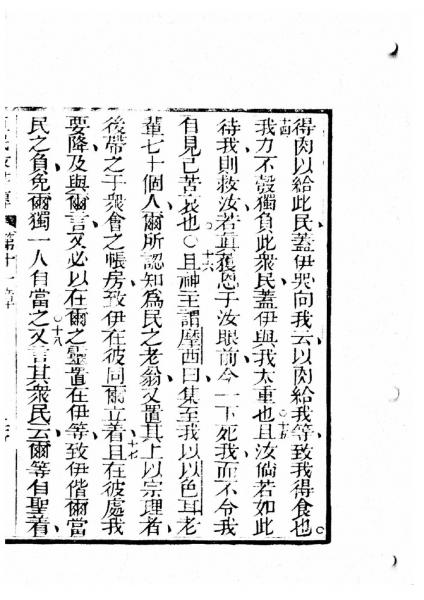 得肉以給此民蓋伊哭向我云以肉給我等致我得食也○
十四我力不彀獨負此衆民蓋伊與我太重也○十五且汝倘若如此
待我則救汝若眞獲恩于汝眼前今一下死我而不令我
自見己苦哀也○十六且神主謂摩西曰集至我以以色耳老
輩七十個人爾所認知為民之老翁又置其上以宗理者
後帶之于衆會之帳房致伊在彼同爾立着十七且在彼處我
要降及與爾言又必以在爾之靈置在伊等致伊偕爾當
民之負免爾獨一人自當之○十八又言其衆民云爾等自聖着
第十一章